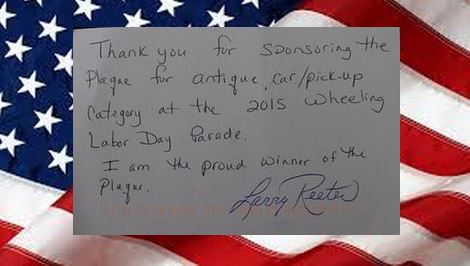 Thank you for sponsoring the
Plaque for antique car/pick-up
Category at the 2015 Wheeling
Labor Day Parade.
I am the proud winner of the
Plaque.
Larry Reeter